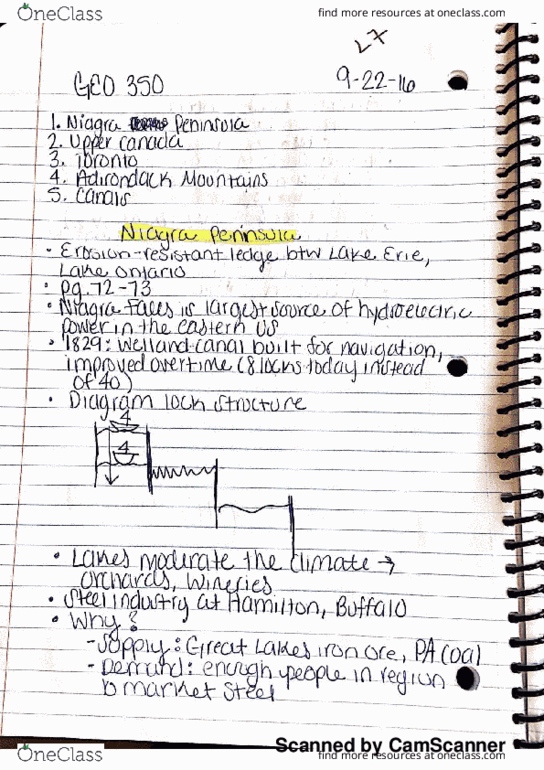 OneClass
find more resources at oneclass.com
L7
GEO 350
9-22-16
1. Niagra Peninsula
2. Upper Canada
3. Toronto
4. Adirondack Mountains
5. Canals
Niagra Peninsula
• Erosion-resistant ledge btw Lake Erie,
Lake Ontario
• pg. 72-73
• Niagra Falls is largest source of hydroelectric
power in the eastern US
• 1829: Welland canal built for navigation,
improved overtime (8 locks today instead
of 40)
• Diagram lock structure
• Lakes moderate the climate →
orchards, wineries
• Steel industry at Hamilton, Buffalo
• Why?
- Supply: Great Lakes iron ore, PA coal
- Demand: enough people in region
to market steel
Scanned by CamScanner
OneClass
find more resources at oneclass.com